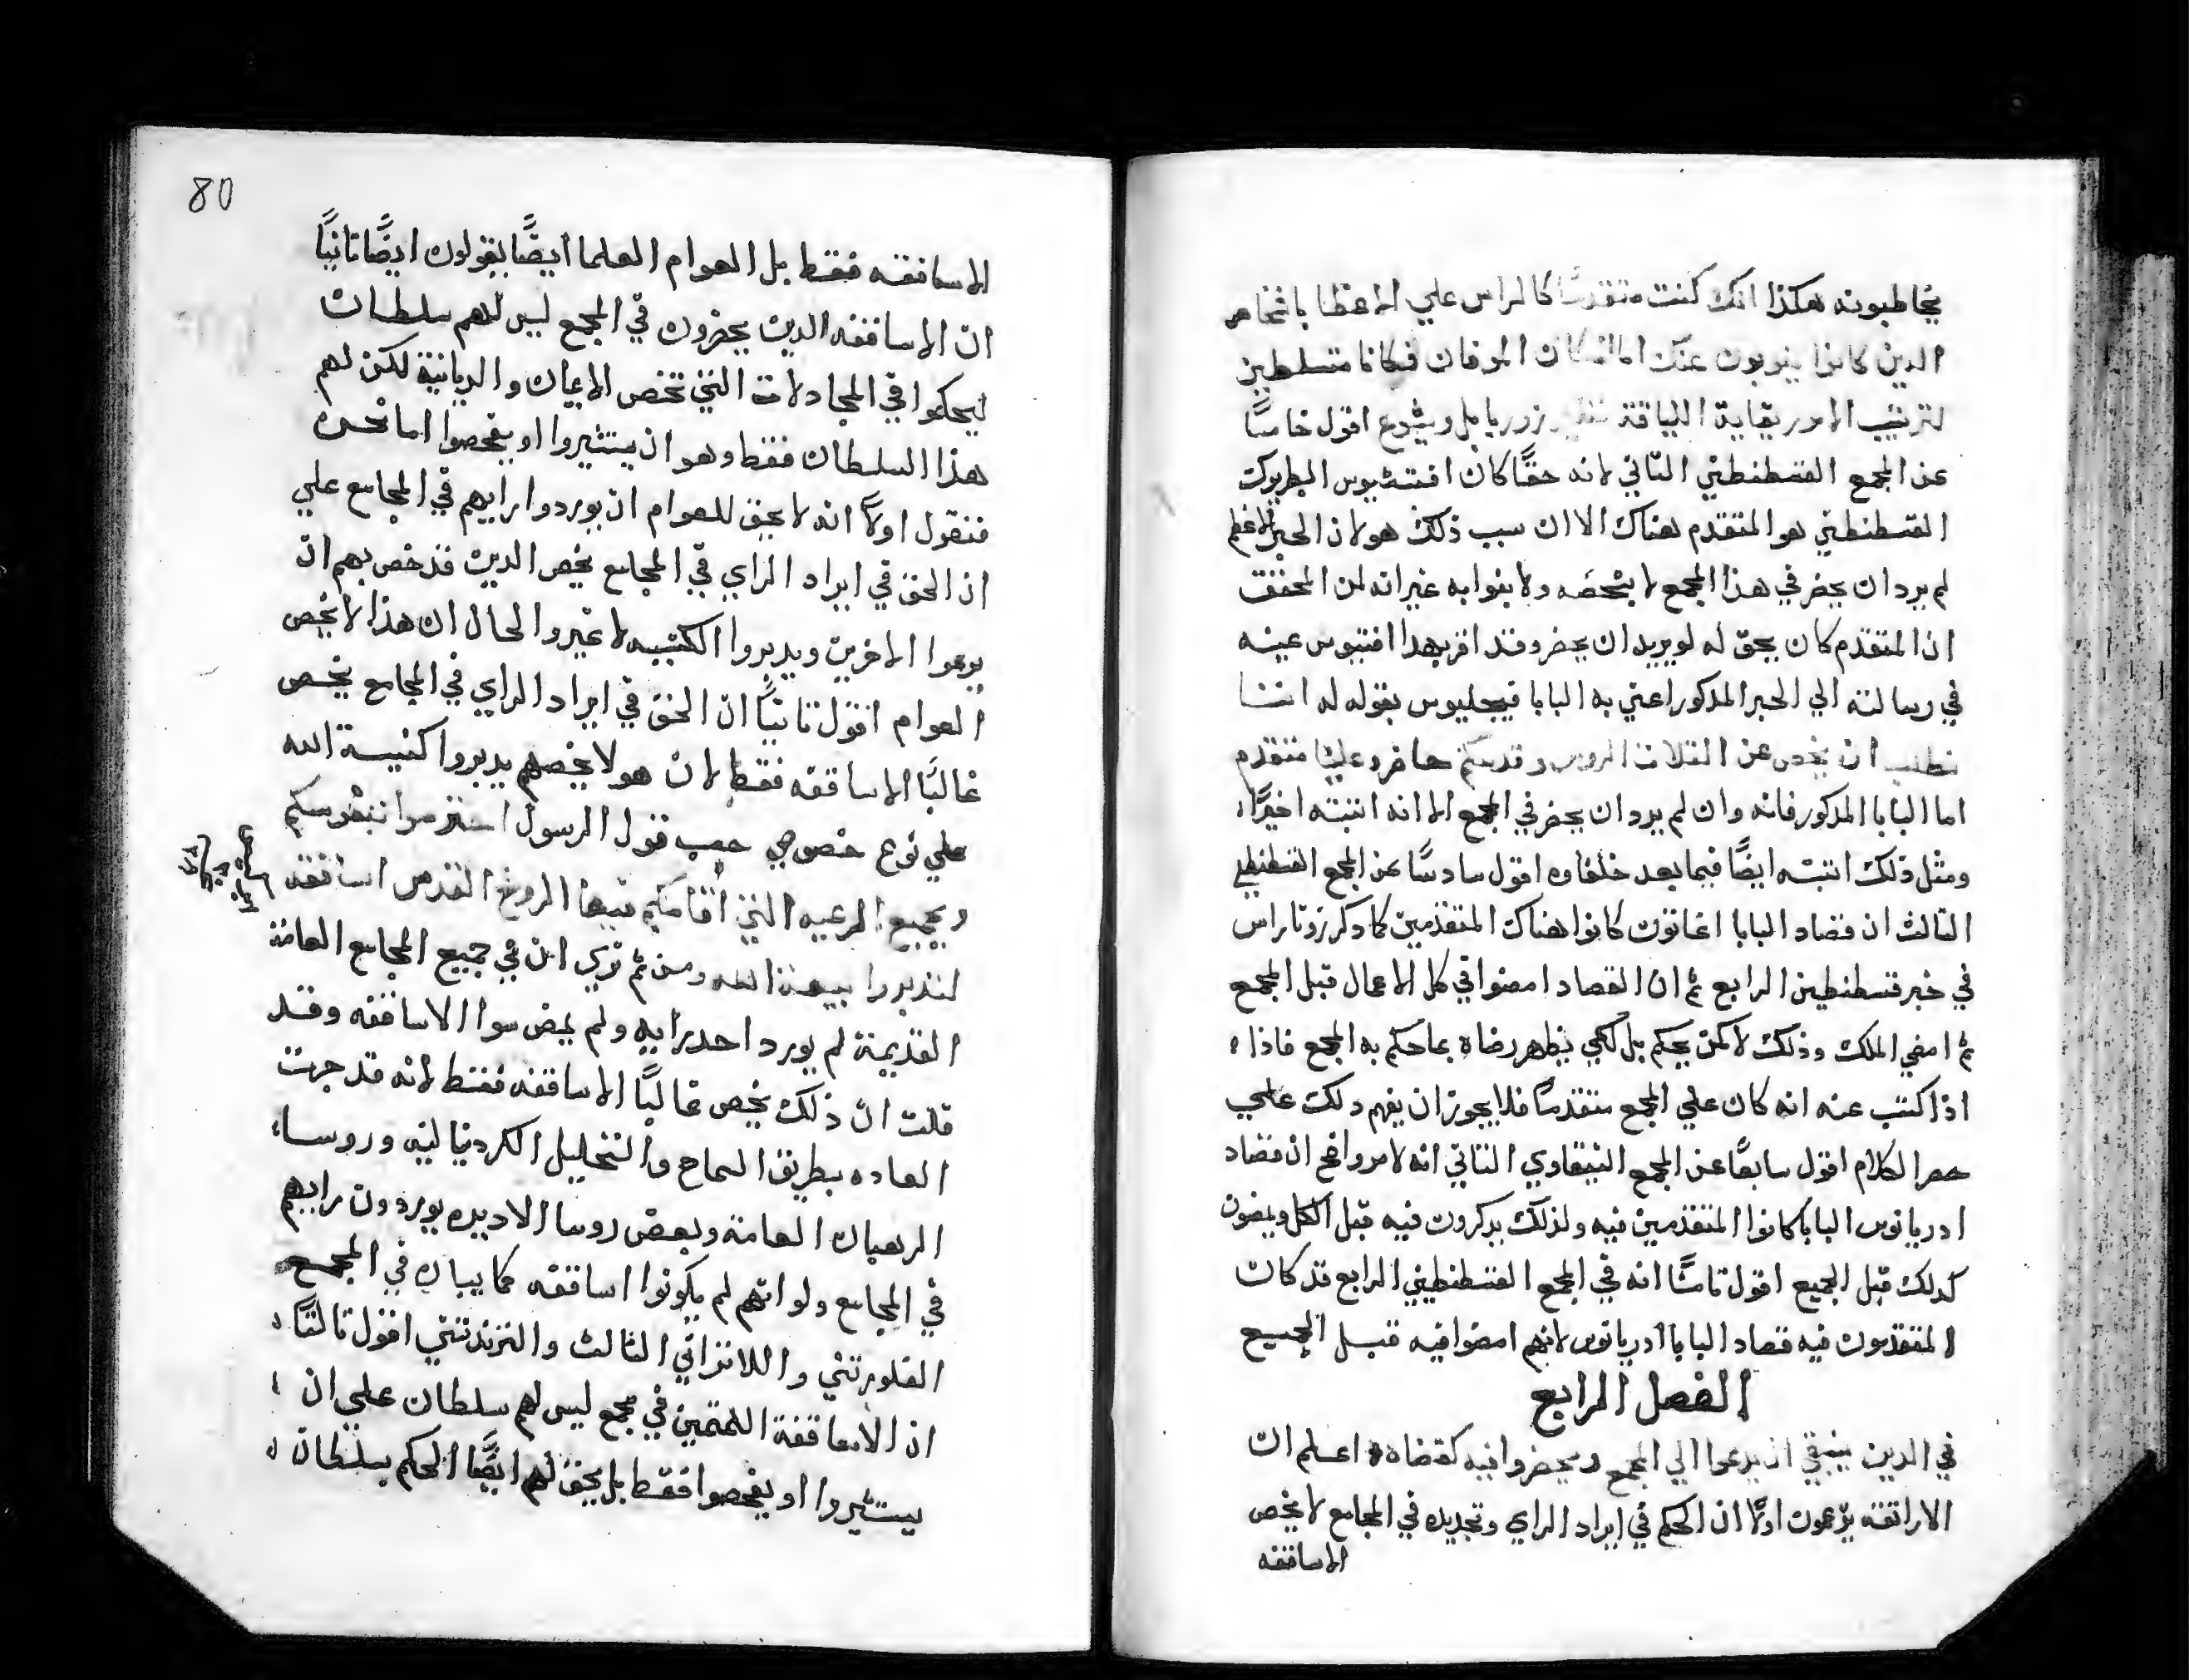 يخاطبونه هكذا انك كنت متقدمًا كالراس علي الاعظا باشخاص
الدين كانوا ينوبون عنك اما الملكان المومنان فكانا متسلطين
لترتيب الامور بغاية اللياقة اقول خامسًا
عن المجمع القسطنطيني الثاني لانه حقًا كان افتيشيوس البطريرك
القسطنطيني هو المتقدم هناك الا ان سبب ذلك هو لان الحبر الاعظم
لم يرد ان يحضر في هذا المجمع لا بشخصه ولا بنوابه غير انه لمن المحقق
ان المتقدم كان يحق له لو يريد ان يحضر وقد اقر بهدا افتيوس عينه
في رسالته الي الحبر المدكور اعني به البابا فيجليوس بقوله له اننا
نطلب ان يفحص عن التلاث الروس وقدسكم حاضر وعلينا متقدم
اما البابا المدكور فانه وان لم يرد ان يحضر في المجمع الا انه اتبته اخيرًا
ومثل ذلك اتبته ايضًا فيما بعد خلفاوه اقول سادسًا عن المجمع القسطنطيني
الثالث ان قصاد البابا اغاتون كانوا هناك المتقدمين كما دكر زوناراس
في خبر قسطنطين الرابع ثم ان القصاد امضوا في كل الاعمال قبل المجمع
ثم امضي الملك وذلك لا كمن يحكم بل لكي يظهر رضاه بما حكم به المجمع فاذا
اذا كتب عنه انه كان علي المجمع متقدمًا فلا يجوز ان يفهم دلك علي
حصر الكلام اقول سابعًا عن المجمع النيقاوي الثاني انه لامر واضح ان قصاد
ادريانوس البابا كانوا المتقدمين فيه ولذلك يدكرون فيه قبل الكل ويمضون
كدلك قبل الجميع اقول تامنًا انه في المجمع القسطنطيني الرابع قد كان
المتقدمون فيه قصاد البابا ادريانوس لانهم امضوا فيه قبل الجميع
الفصل الرابع
في الدين ينبغي ان يدعوا الي المجمع ويحضروا فيه كقضاه اعلم ان
الاراتقه يزعمون اولًا ان الحكم في ايراد الراي وتحديده في المجامع لا يخص
الاساقفه
80
الاساقفه فقط بل العوام العلما ايضًا يقولون ايضًا تانيًا
ان الاساقفه الدين يحضرون في المجمع ليس لهم سلطان
ليحكموا في المجادلات التي تخص الايمان والديانة لكن لهم
هذا السلطان فقط وهو ان يستشيروا او يفحصوا اما نحن
فنقول اولًا انه لا يحق للعوام ان يوردوا رايهم في المجامع علي
ان الحق في ايراد الراي في المجامع يخص الدين قد خص بهم ان
يرعوا الاخرين ويدبروا الكنيسه لا غير والحال ان هذا لا يخص
العوام اقول تانيًا ان الحق في ايراد الراي في المجامع يخص
غالبًا الاساقفه فقط لان هولا يخصهم يدبروا كنيسة الله
علي نوع خصوصي حسب قول الرسول احترسوا بنفوسكم
وبجميع الرعيه التي اقامكم فيها الروح القدس اساقفه
لتدبروا بيعة الله ومن ثم تري ان في جميع المجامع العامة
القديمة لم يورد احد رايه ولم يمض سوا الاساقفه وقد
قلت ان ذلك يخص غالبًا الاساقفه فقط لانه قد جرت
العاده بطريق السماح والتحليل الكردنياليه وروسا
الرهبان العامة وبعض روسا الاديره يوردون رايهم
في المجامع ولو انهم لم يكونوا اساقفه كما يبان في المجمع
الفلورنتني واللاتراني الثالث والترندنتني اقول تالتًا
ان الاساقفة الملتمين في مجمع ليس لهم سلطان علي ان
يستشيروا او يفحصوا فقط بل يحق لهم ايضًا الحكم بسلطان